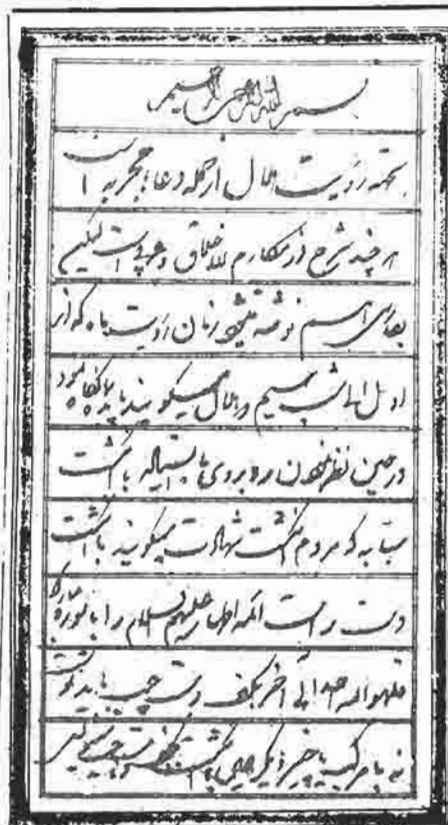 بسم الله الرحمن الرحیم
بجهة رؤیت هلال از جمله دعاء مجربه است
هر چند شرح در مکارم الاخلاق و عربی است لیکن
بفارسی هم نوشته میشود زمان رؤیت ماه که از
اول الی شب سیم هلال میگویند باید نگاه نمود
در حین نظر نمودن رو بروی ما باشت
سبابه که مردم انگشت شهادت میگویند با انگشت
دست راست ائمه اطهار علیهم السلام را با سوره مبارکه
قل هو الله احد الی آخر بکف دست چپ باید نوشت
نه با مرکب یا چیز دیگر همین با انگشت بکف دست چپ